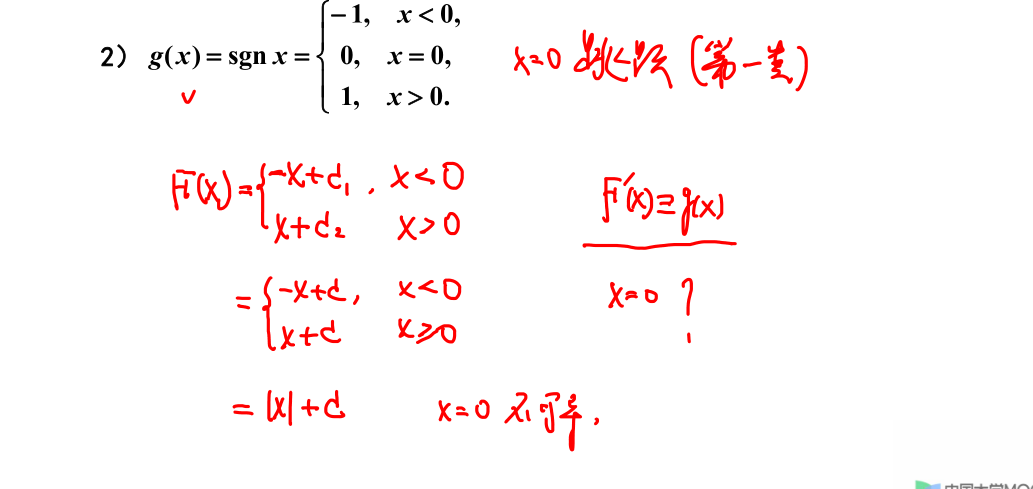 2) g(x) = sgn x = { -1, x < 0,
0, x = 0,
1, x > 0.
x=0 跳跃 (第一类)
F(x) = { -x+c₁, x<0
x+c₂ x>0
F'(x) ≡ g(x)
= { -x+c, x<0
x+c x≥0
x=0 ?
= |x|+c x=0 不可导,
中国大学MO